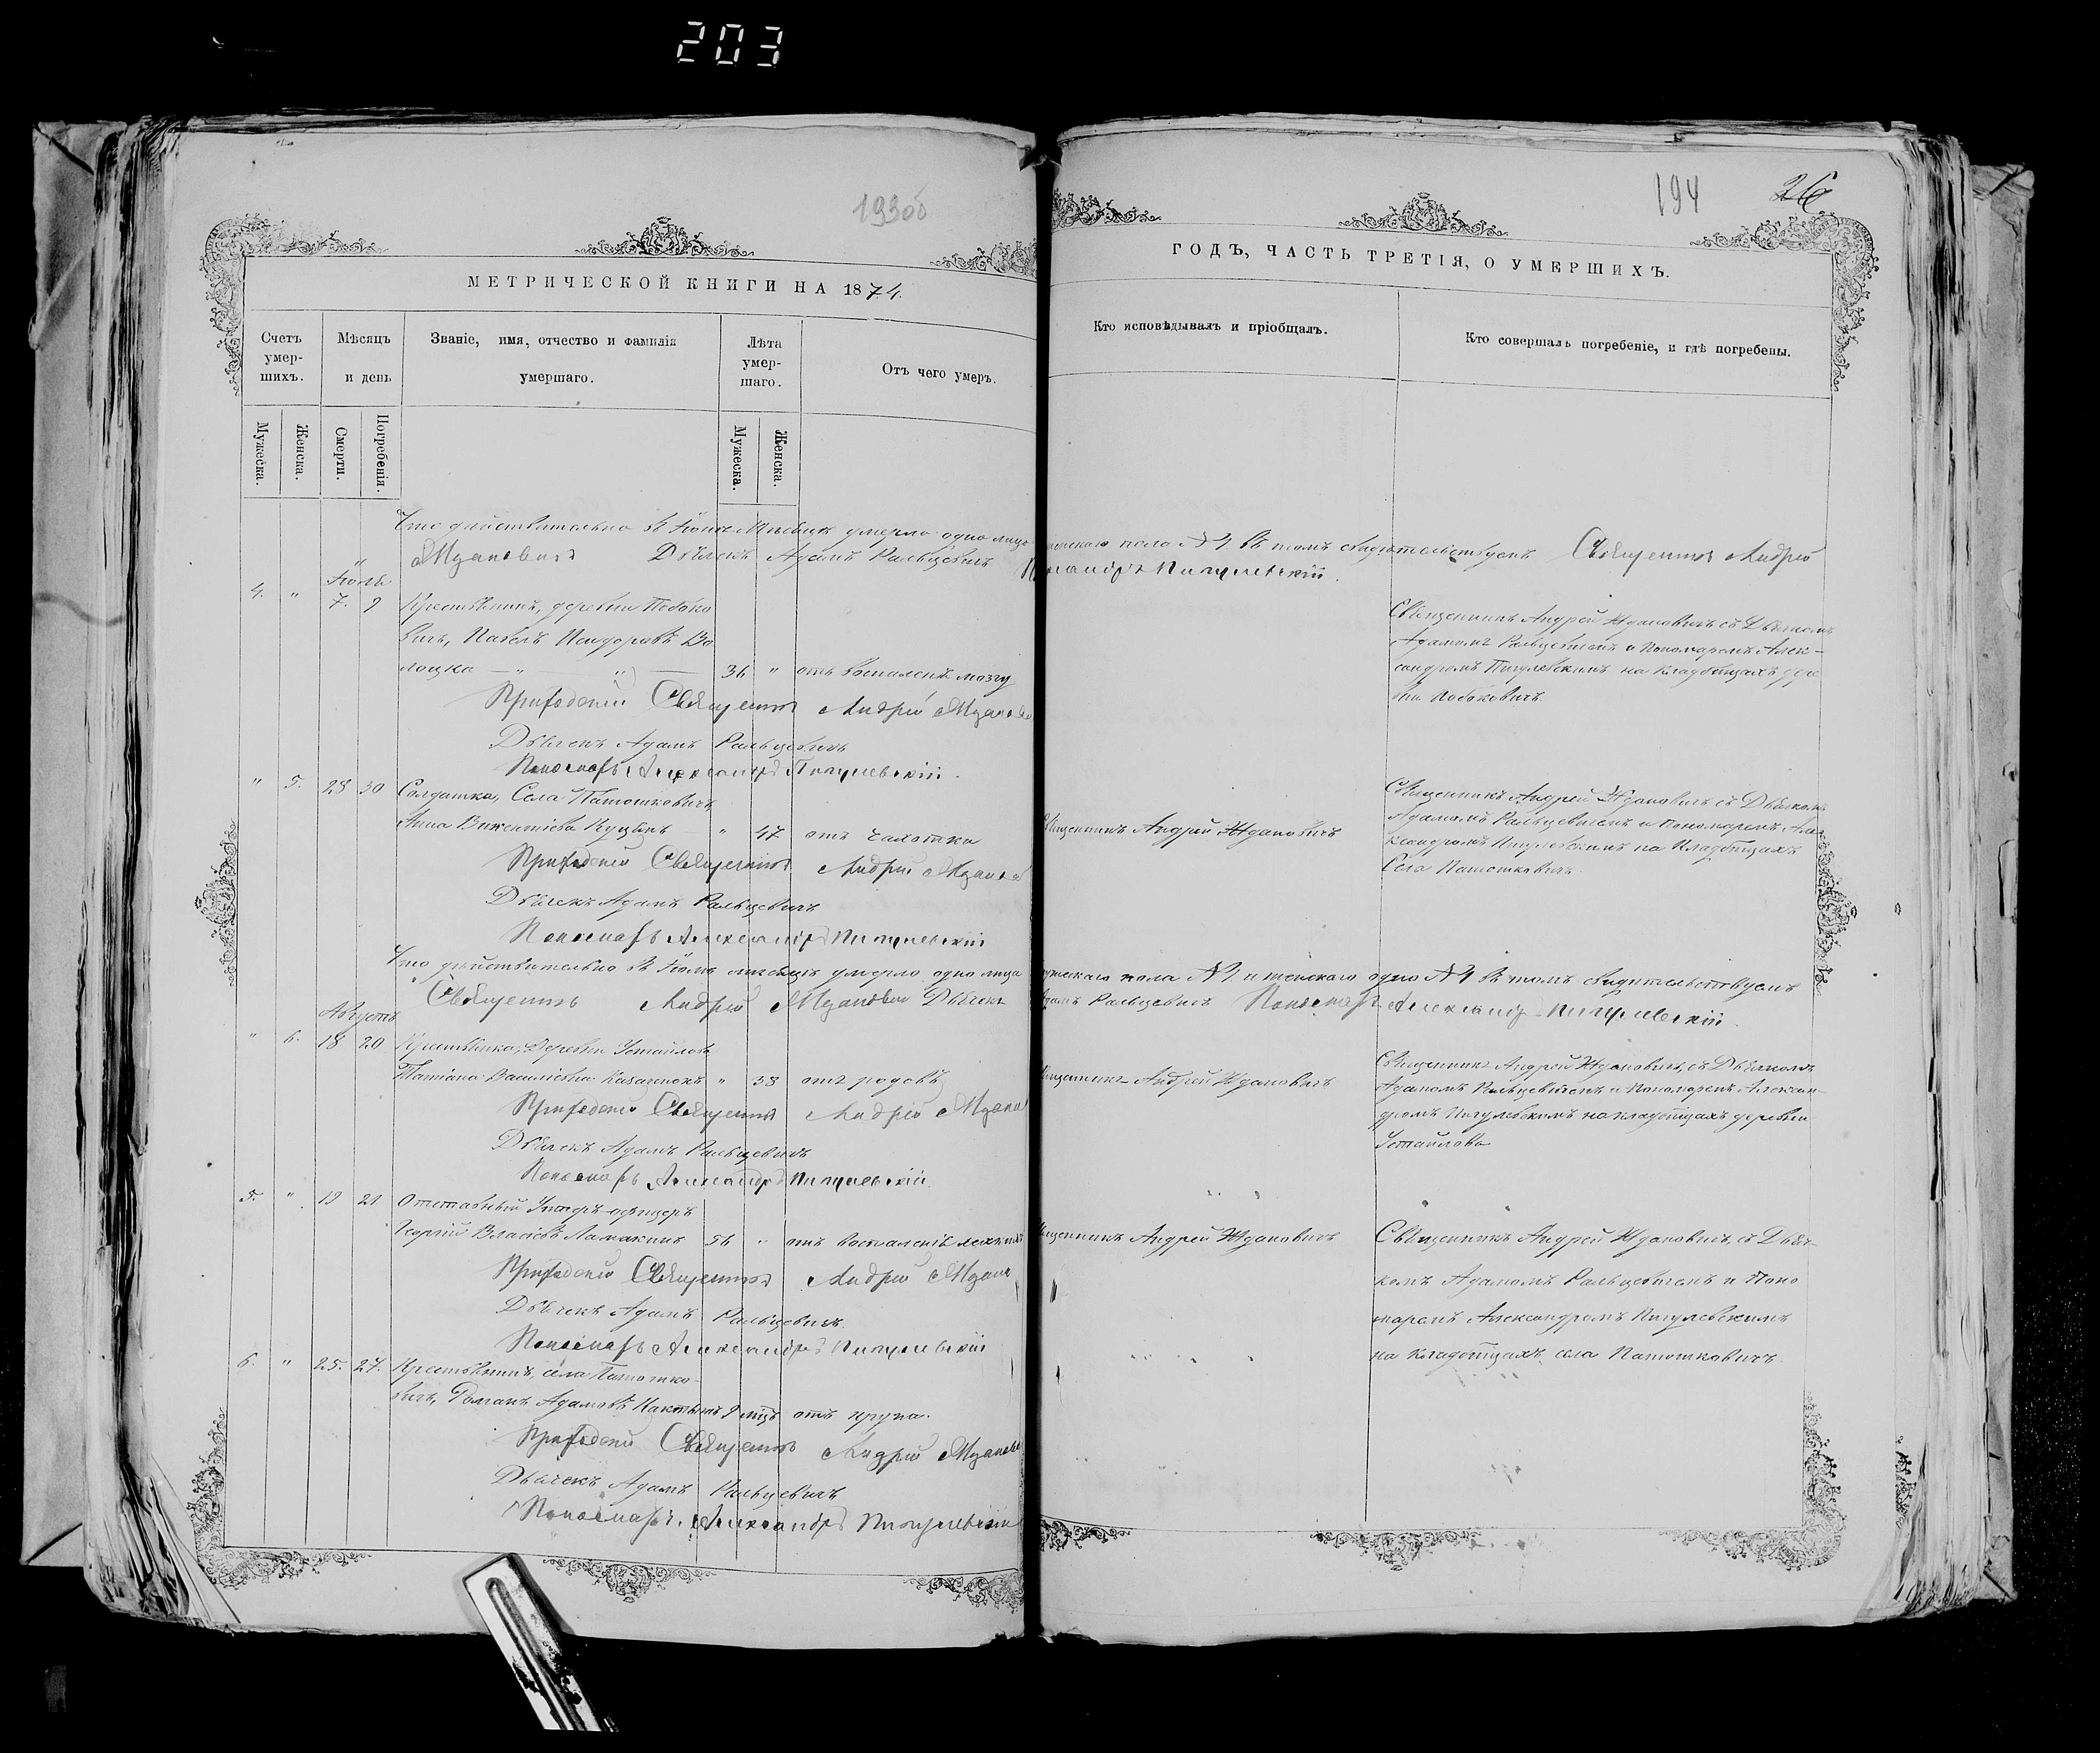 203
193об
194
26
МЕТРИЧЕСКОЙ КНИГИ НА 1874.
ГОДЪ, ЧАСТЬ ТРЕТІЯ, О УМЕРШИХЪ.
Счетъ умер-шихъ.
Мѣсяцъ и день
Званіе, имя, отчество и фамилія умершаго.
Лѣта умер-шаго.
Отъ чего умеръ.
Кто исповѣдывалъ и пріобщалъ.
Кто совершалъ погребеніе, и гдѣ погребены.
Мужеска.
Женска.
Смерти.
Погребенія.
Мужеска.
Женска.
Что действительно въ Іюнѣ Месяцѣ умерло одно лицо женскаго пола №1. въ томъ свидѣтельствуемъ Священникъ Андрей
Ждановичъ Дьячекъ Адамъ Ральцевичъ Александръ Пигулевскій.
Іюль
4. " 7. 9 Крестьянинъ, деревни
вичъ, Павелъ Исидоровъ Во
лоцка — " — 36 " отъ воспаленія мозгу
Священникъ Андрей Ждановичъ съ Дьячкомъ
Адамомъ Ральцевичемъ и Пономаремъ Алек-
сандромъ Пигулевскимъ на кладбищахъ дере
вни
Приходскій Священникъ Андрей Ждановичъ
Дьячекъ Адамъ Ральцевичъ
Пономарь Александръ Пигулевскій.
" 5. 28 30 Солдатка, Села
Анна Викентіева " 47 отъ чахотки
Священникъ Андрей Ждановичъ
Священникъ Андрей Ждановичъ съ Дьячкомъ
Адамомъ Ральцевичемъ и Пономаремъ Але
ксандромъ Пигулевскимъ на Кладбищахъ
Села
Приходскій Священникъ Андрей Жданов
Дьячекъ Адамъ Ральцевичъ
Пономарь Александръ Пигулевскій
Что действительно въ Іюлѣ месяцѣ умерло одно лицо мужескаго пола №1. и женскаго одно №1 въ томъ свидѣтельствуемъ
Священникъ Андрей Ждановичъ Дьячекъ Адамъ Ральцевичъ Пономарь Александръ Пигулевскій.
Августъ
" 6. 18 20 Крестьянка, Деревни Устайлова
Татіана Василіевна Казаченокъ " 38 отъ родовъ
Священникъ Андрей Ждановичъ
Священникъ Андрей Ждановичъ, съ Дьячкомъ
Адамомъ Ральцевичемъ и Пономаремъ Алексан-
дромъ Пигулевскимъ на кладбищахъ деревни
Устайлова
Приходскій Священникъ Андрей Жданов
Дьячекъ Адамъ Ральцевичъ
Пономарь Александръ Пигулевскій.
5. " 19 21 Отставный Унтеръ-офицеръ
Георгій Власіевъ Ламакинъ 56 " отъ воспаленія легкихъ
Священникъ Андрей Ждановичъ
Священникъ Андрей Ждановичъ, съ Дьяч-
комъ Адамомъ Ральцевичемъ и Поно
маремъ Александромъ Пигулевскимъ
на кладбищахъ села
Приходскій Священникъ Андрей Ждан
Дьячекъ Адамъ Ральцевичъ.
Пономарь Александръ Пигулевскій
6. " 25. 27. Крестьянинъ, села
вичъ, Романъ Адамовъ 9 мѣц отъ крупа.
Приходскій Священникъ Андрей Жданов
Дьячекъ Адамъ Ральцевичъ
Пономарь Александръ Пигулевскій